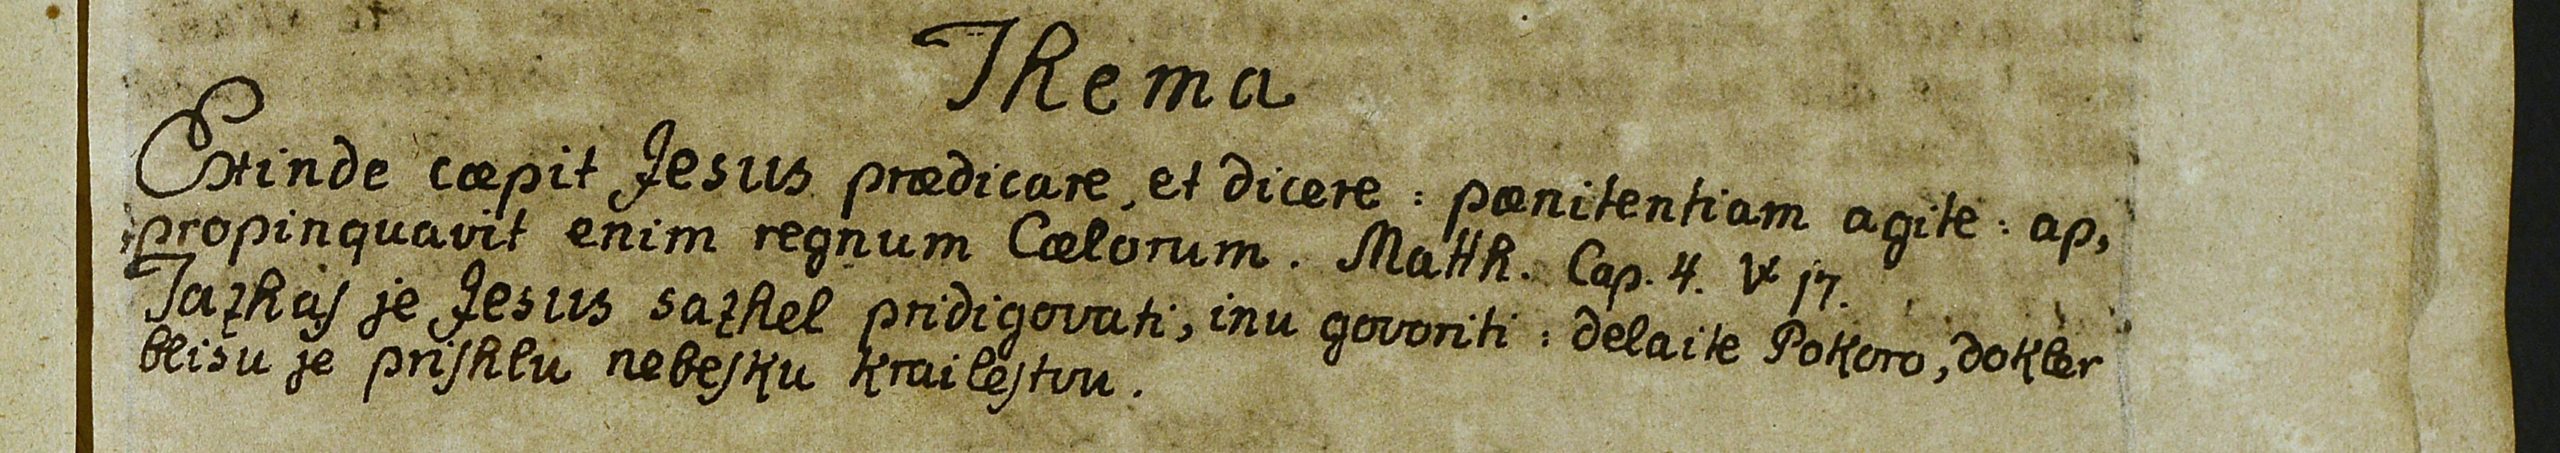 Thema
Exinde cœpit Jesus prædicare, et dicere : pœnitentiam agite : ap,
propinquavit enim regnum Cœlorum. Matth. Cap. 4. V 17.
Tazhaſ je Jesus sazhel pridigovati, inu govoriti : delaite Pokoro, dokler
blisu je priſhlu nebeſku kraileſtvu.